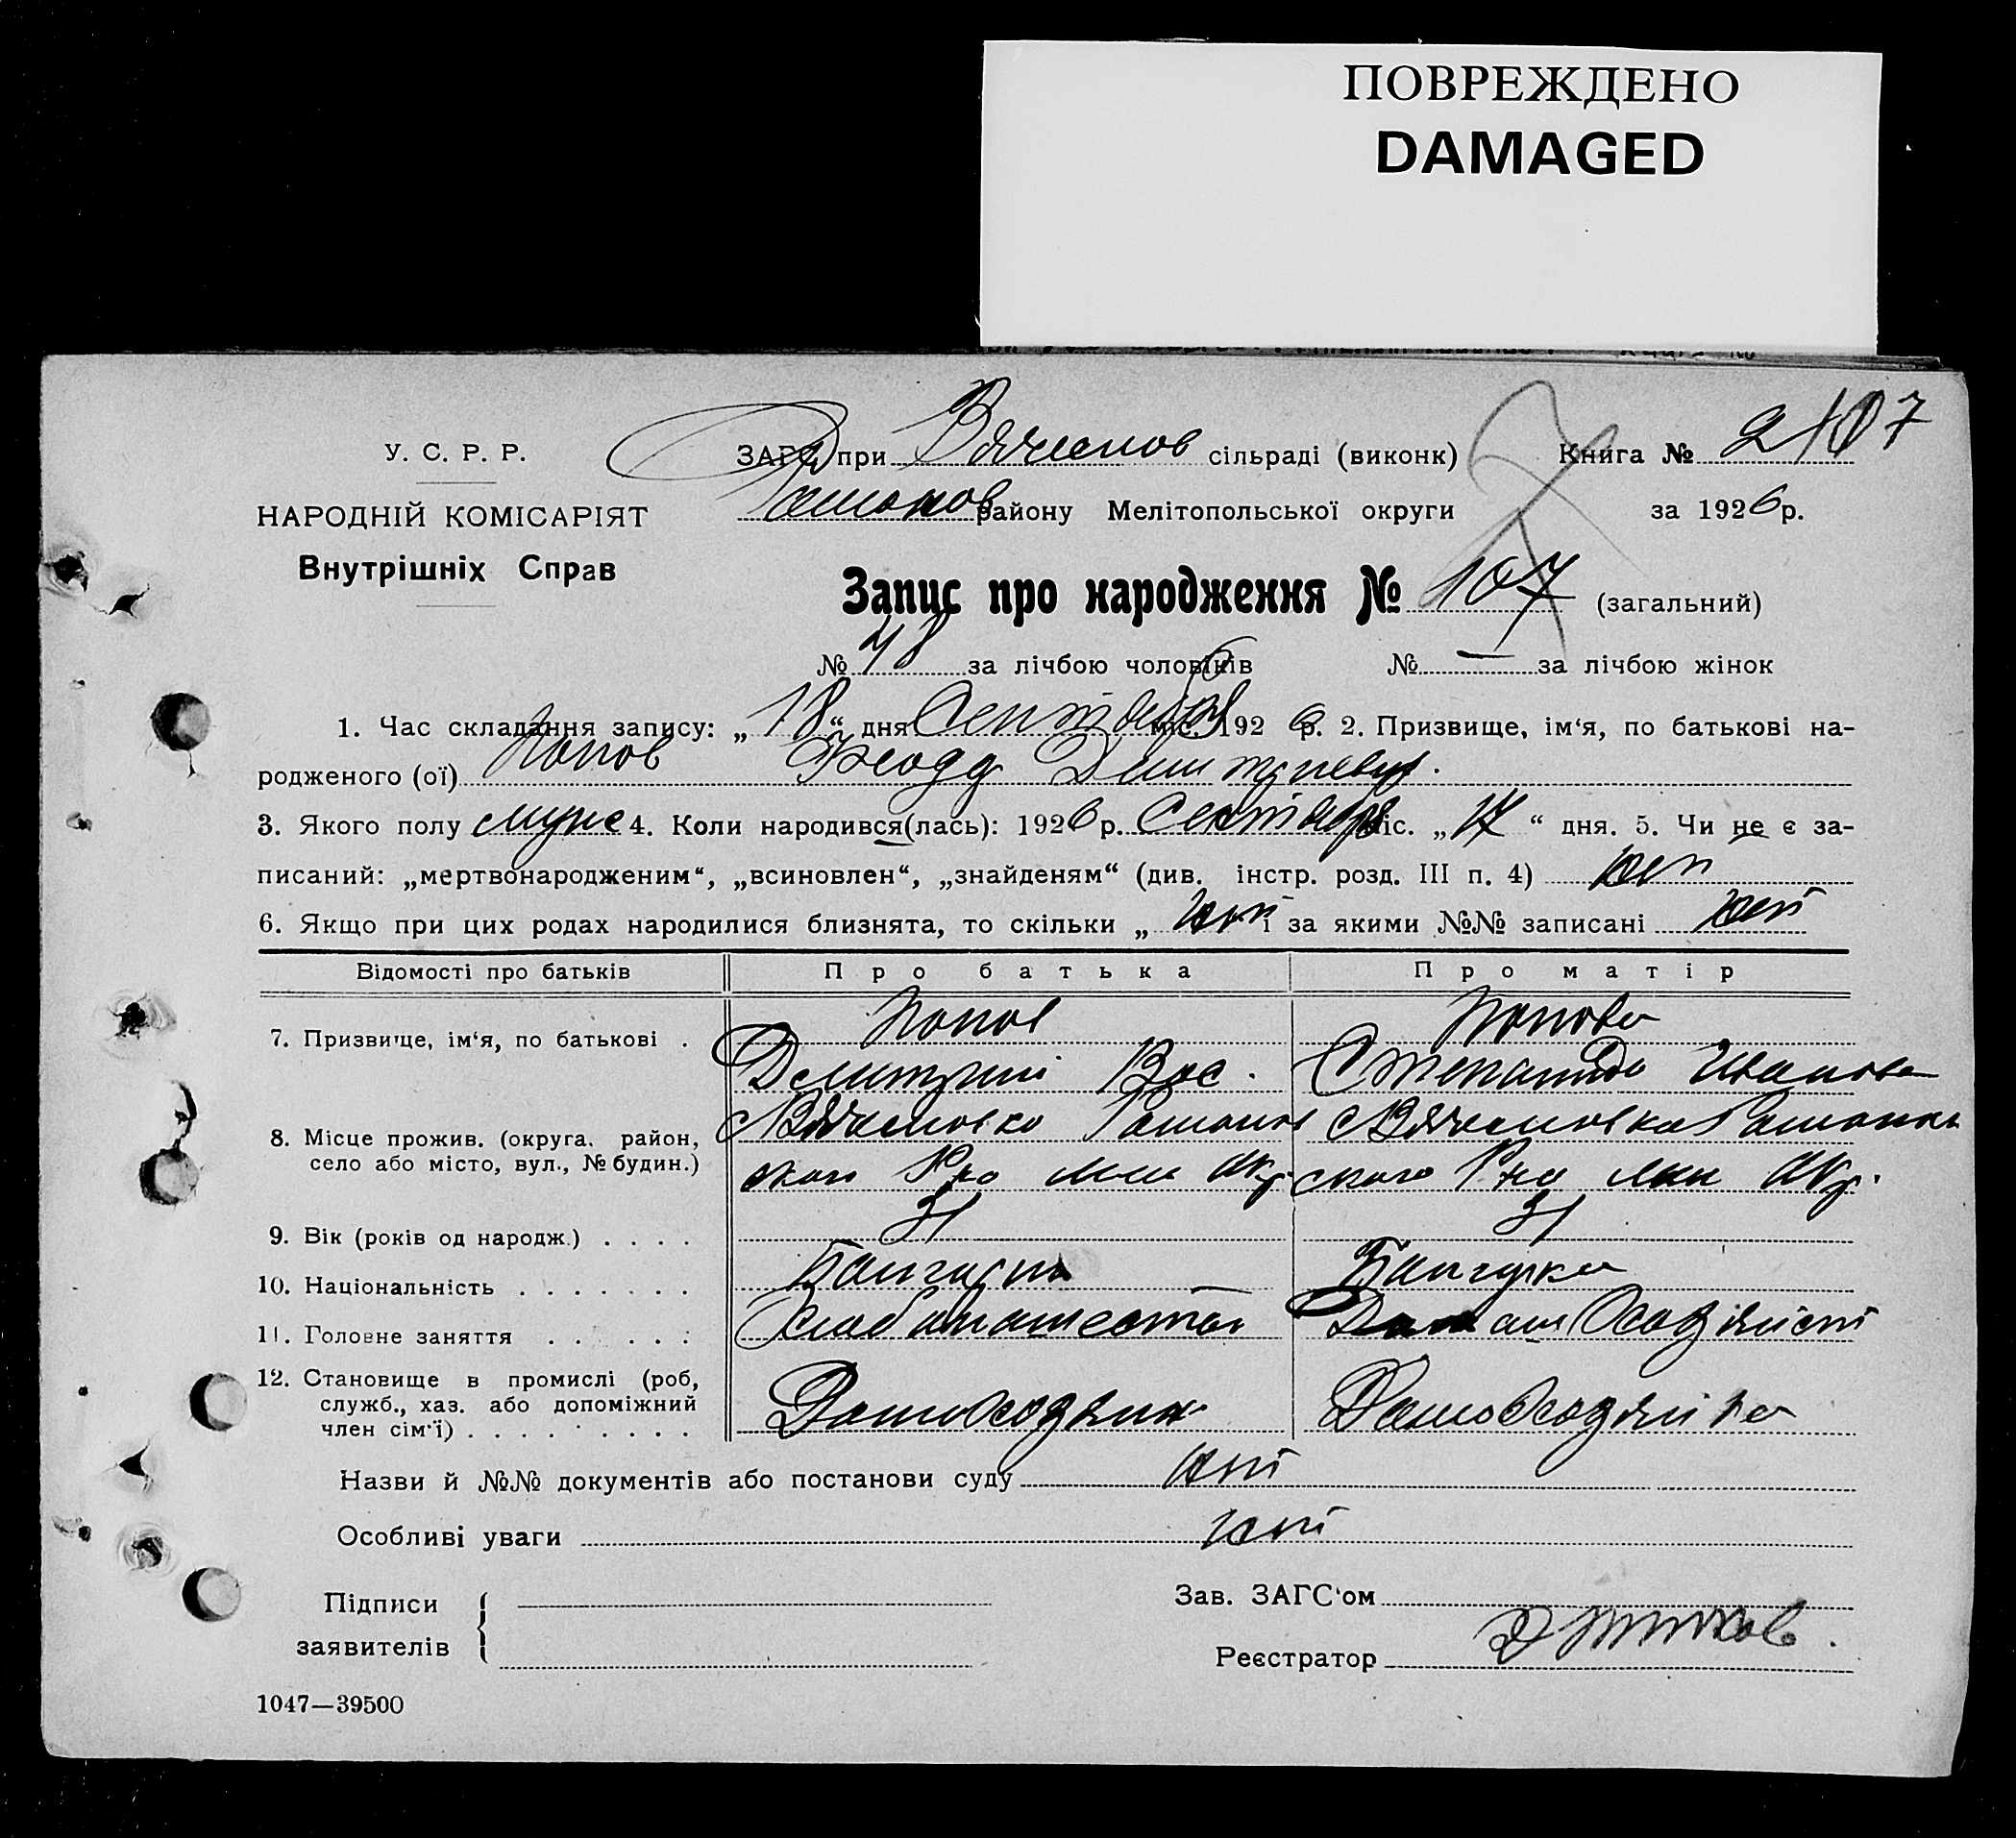 ПОВРЕЖДЕНО
DAMAGED
У. С. Р. Р.
ЗАГС при Вячеслов сільраді (виконк) Книга № 2
107
НАРОДНІЙ КОМІСАРІЯТ
району Мелітопольської округи за 1926 р.
Внутрішніх Справ
Запис про народження № 107 (загальний)
№ 48 за лічбою чоловіків № — за лічбою жінок
1. Час складання запису: „18“ дня Сентября міс. 1926 р. 2. Призвище, ім‘я, по батькові на-
родженого (ої) Попов Феодр Дмитриевич.
3. Якого полу муже 4. Коли народився(лась): 1926 р. Сентября міс. „17“ дня. 5. Чи не є за-
писаний: „мертвонародженим“, „всиновлен“, „знайденям“ (див. інстр. розд. III п. 4) нет
6. Якщо при цих родах народилися близнята, то скільки „ нет і за якими №№ записані нет
Відомості про батьків Про батька Про матір
7. Призвище, ім‘я, по батькові . Попов Попова
Дмитрий Вас. Степанида Иванова
8. Місце прожив. (округа, район,
село або місто, вул., № будин.)
9. Вік (років од народж.) . . . . 31 31
10. Національність . . . . . . . Болгарин Болгарка
11. Головне заняття . . . . . . Хлебопашество
12. Становище в промислі (роб,
служб., хаз. або допоміжний
член сім‘ї) . . . . . . . . . Домохозяин Домохозяйка
Назви й №№ документів або постанови суду нет
Особливі уваги нет
Підписи
заявителів
Зав. ЗАГС‘ом
Реєстратор
1047—39500